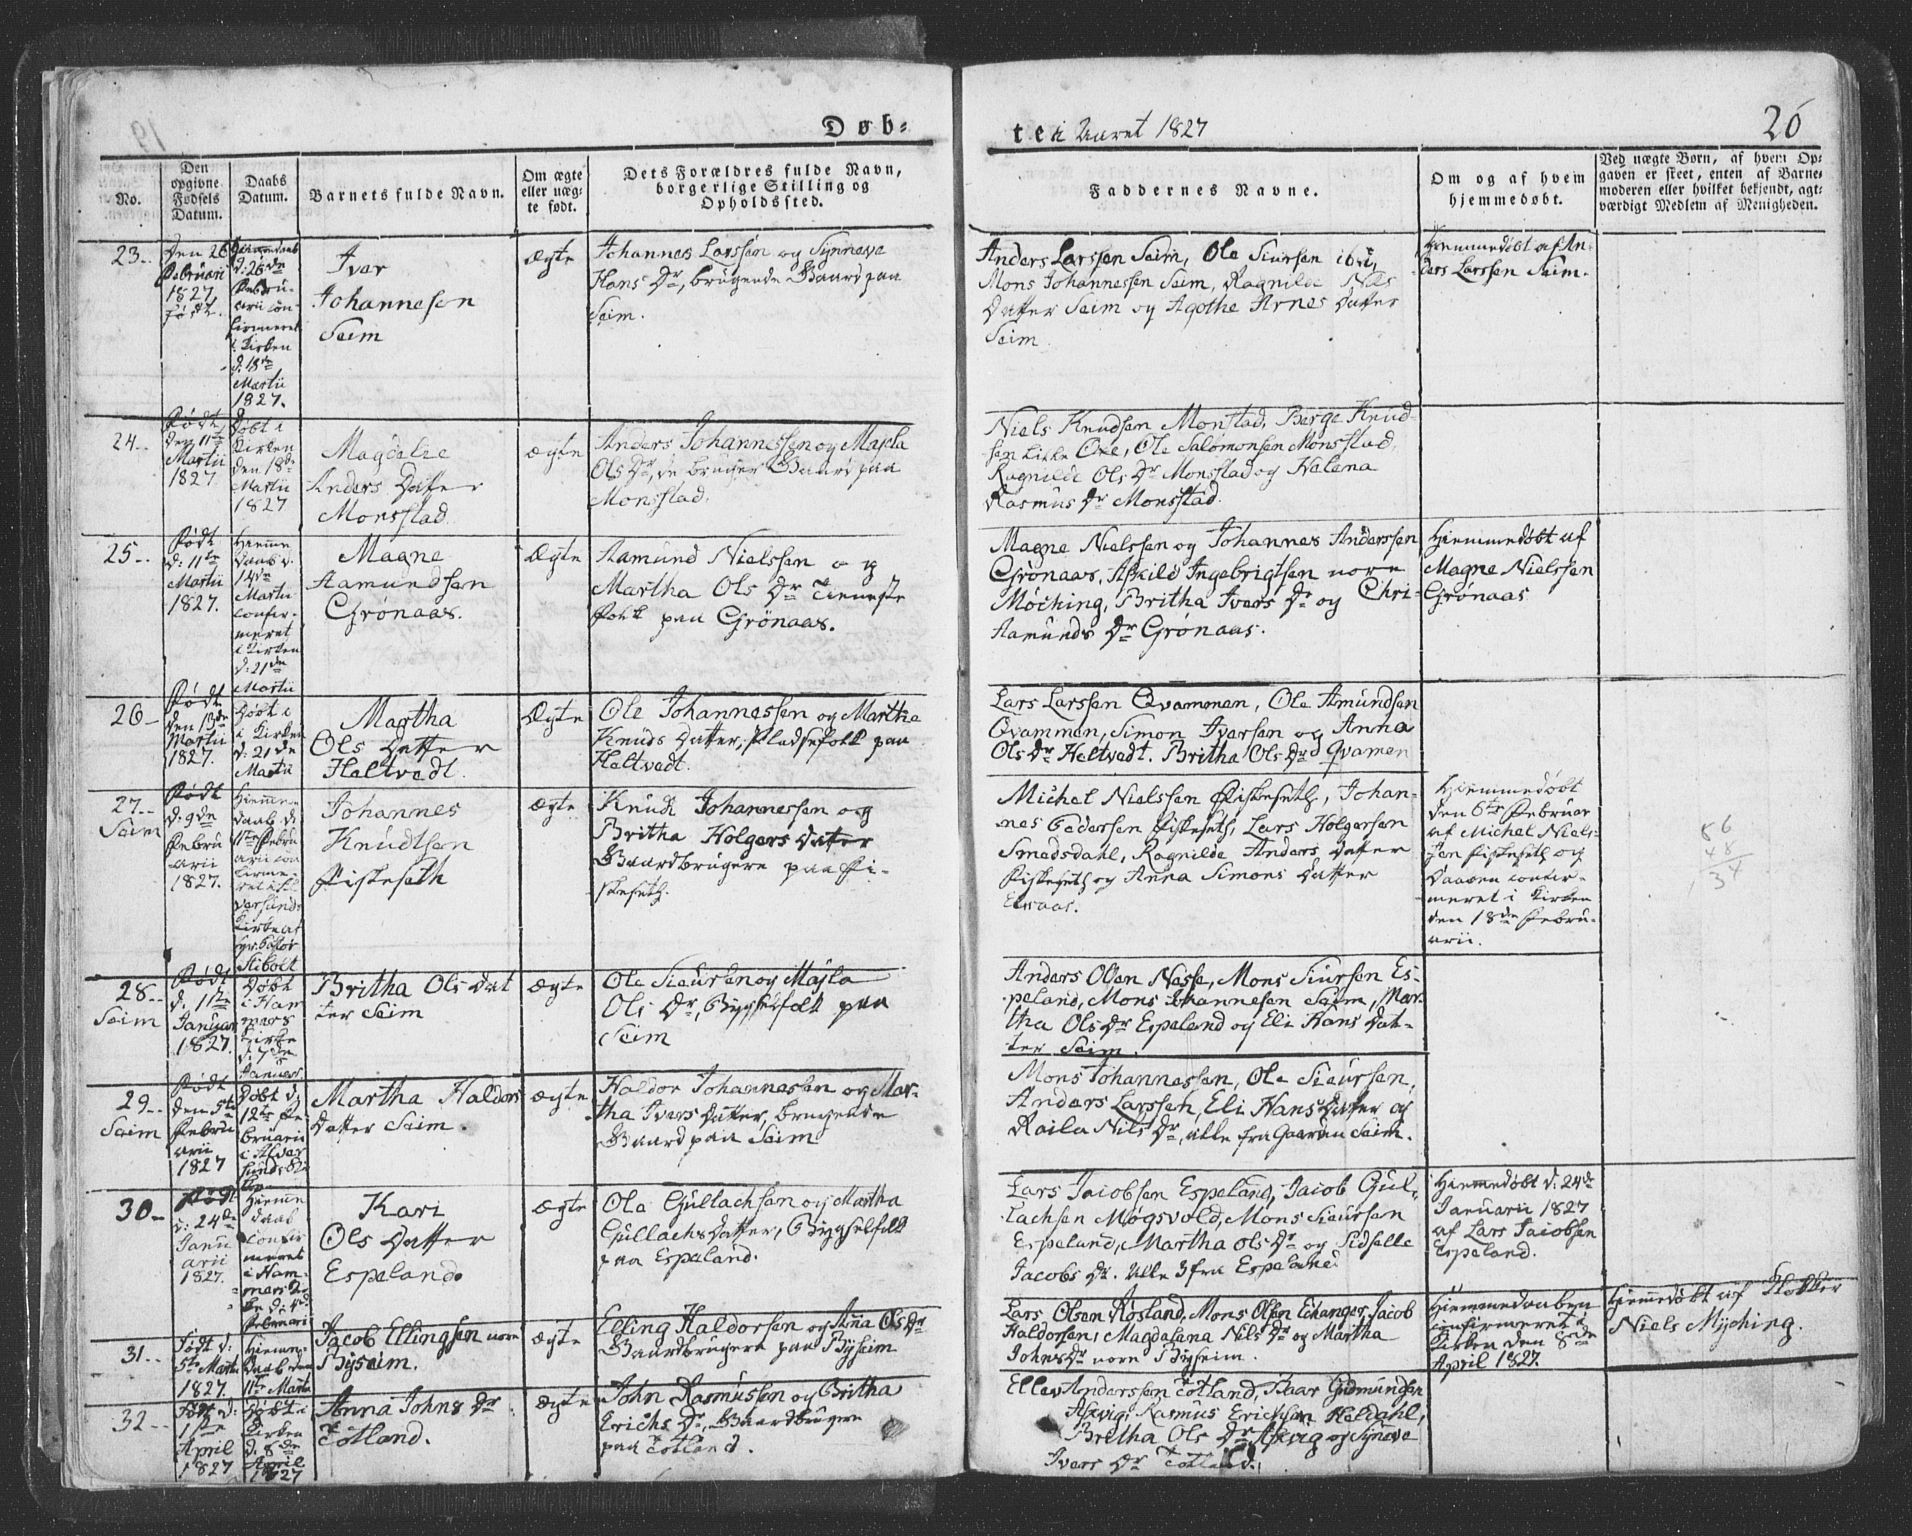 Døb-
te i Aaret 1827
26
No.
Den opgivne Fødsels Datum.
Daabs Datum.
Barnets fulde Navn.
Om ægte eller uægte født.
Dets Forældres fulde Navn, borgerlige Stilling og Opholdssted.
Faddernes Navne.
Om og af hvem hjemmedøbt.
Ved uægte Børn, af hvem Opgaven er skeet, enten af Barnemoderen eller hvilket bekjendt, agtværdigt Medlem af Menigheden.
23
Den 26
Februari
1827
født.
Hiemmedaab
d: 26de
Februarii
confirmeret
i Kirken
d. 18de
Martii
1827.
Iver
Johannesen
Seim
Ægte
Johannes Larssen og Synneve
Hans Dr, brugende Gaard paa
Seim.
Anders Larssen Seim, Ole Siursen ibid,
Mons Johannessen Seim, Ragnilde Nils
Datter Seim og Agothe Arnes Datter
Seim
Hiemmedøbt af An-
ders Larssen Seim.
24
Født
den 11te
Martii
1827
Døbt i
Kirken
den 18de
Martii
1827
Magdele
Anders Datter
Monsstad
ægte
Anders Johannessen og Majla
Ols Dr, de bruger Gaard paa
Monsstad.
Niels Knudsen Monstad, Berge Knud-
sen Lille Oxe, Ole Salomonsen Monsstad,
Ragnilde Ols Dr Monsstad og Helena
Rasmus Dr Monsstad.
25
Født
d: 11te
Martii
1827.
Hiemme
Daab d.
14de
Martii
confir-
meret
i Kirken
d: 21de
Martii
Magne
Aamundsen
Grønaas.
Ægte
Aamund Nielssen og
Martha Ols Dr Tieneste
folk paa Grønaas.
Magne Nielssen og Johannes Anderssen
Grønaas, Askild Ingebrigtsen nore
Møching, Britha Ivers Dr og Chri-
Aamunds Dr Grønaas.
Hiemmedøbt af
Magne Nielssen
Grønaas
26
Født
den 13de
Martii
1827.
Døbt i
Kirken
d: 21de
Martii
Martha
Ols Datter
Heltvedt.
Ægte
Ole Johannessen og Martha
Knuds Datter, Pladsefolk paa
Heltvedt.
Lars Larssen Qvammen, Ole Amundsen
Qvammen, Simon Iversen og Anna
Ols Dr Heltvedt. Britha Ols Dr Qvamen
27
Seim
Født
d: 9de
Febru
arii
1827.
Hiemme-
daab d:
11te Febru
arii con
firme-
ret i Al
versunds
Kirke af
Hr. Pastor
Stibolt
Johannes
Knudtsen
Fiskeseth
Ægte
Knud Johannessen og
Britha Holgers Datter
Gaardbrugere paa Fi-
skeseth.
Michel Nielssen Fiskeseth, Johan-
nes Pedersen Fiskeseth, Lars Holgersen
Smedsdahl, Ragnilde Anders Datter
Fiskeseth og Anna Simons Datter
Hiemmedøbt
den 6te Februar
af Michel Niels-
sen Fiskeseth og
Daaben confir-
meret i Kirken
den 18de Febru-
arii.
86
48
34
28
Seim
Født
d. 1ste
Januar
1827.
Døbt
i Ham
mers
Kirke
d: 7de
Januar
Britha Ols Dat
ter Seim
ægte
Ole Sieursen og Majla
Ols Dr, Bygselfolk paa
Seim
Anders Olsen Nesse, Mons Siursen Es-
peland, Mons Johannesen Seim, Mar-
tha Ols Dr Espeland og Eli Hans Dat-
ter Seim.
29
Seim
Født
den 5te
Febru
arii
1827
Døbt d.
12te Fe-
bruarii
i Alver
sunds
Martha Haldors
Datter Seim.
ægte
Haldor Johannesen og Mar-
tha Ivers Datter, brugende
Gaard paa Seim
Mons Johannessen, Ole Sieursen,
Anders Larssen, Eli Hans Datter og
Raila Nils Dr, alle fra Gaarden Seim.
30
Født
d: 24de
Janu
arii
1827.
Hiemme
daab
confir
meret
i Ham-
mers Kir
ke d: 4de
Februari
Kari
Ols Datter
Espeland
ægte
Ole Gullachsen og Martha
Gullachs Datter, Bygselfolk
paa Espeland.
Lars Jacobsen Espeland, Jacob Gul-
lachsen Møgsvold, Mons Sieursen
Espeland, Martha Ols Dr og Sidselle
Jacobs Dr. Alle 3 fra Espeland
Hiemmedøbt d: 24de
Januarii 1827
af Lars Jacobsen
Espeland.
31
Født d:
5te Martii
1827.
Hiem-
Daab den
11te Martii
Jacob Ellingsen nore
Byseim.
ægte
Elling Haldorsen og Anna Ols Dr
Gaardbrugere paa Byseim
Lars Olsen Røsland, Mons Olsen Echanger, Jacob
Haldorsen, Magdalena Nils Dr og Martha
Johns Dr nore Byseim.
Hiemmedaaben
confirmeret i
Kirken den 8de
April 1827.
Hiemmedøbt af Klokker
Niels Myching.
32
Født d:
1ste
April
1827
Døbt i
Kirken
d: 8de
April
1827
Anna Johns Dr
Totland.
ægte
John Rasmusson og Britha
Erichs Dr, Gaardbrugere
paa Totland.
Ellev Anderssen Totland, Baar Gudmundsen
Askvig, Rasmus Erichsen Heldahl,
Britha Ols Dr Askvig og Syneve
Ivers Dr Totland.